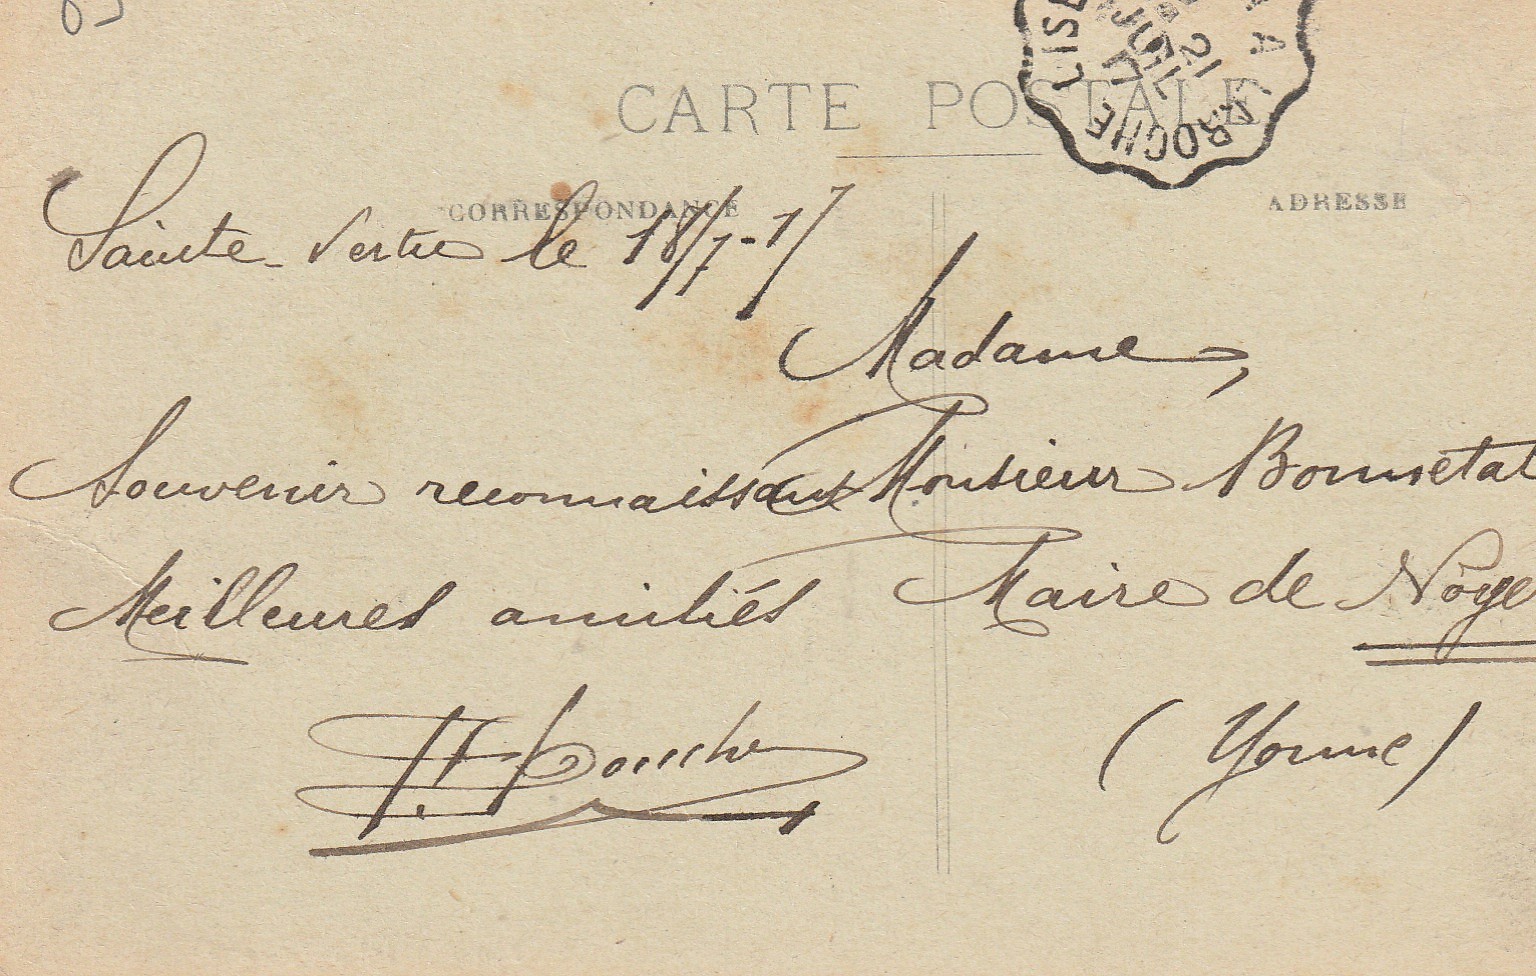 L'ISLE A LAROCHE
21
JUIL
17
CARTE POSTALE
CORRESPONDANCE
ADRESSE
Sainte-Vertu le 18/7-17
Madame,
Souvenir reconnaissant
Meilleures amitiés
Monsieur Bonnetat
Maire de Noye
(Yonne)